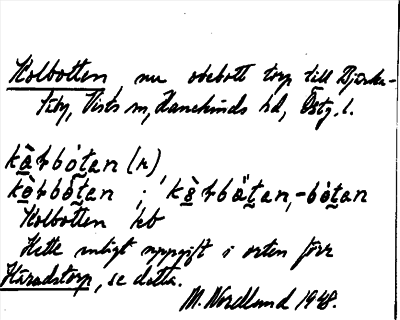 Kolbotten, nu obebott torp till Djurke-
by, Vists sn, Hanekinds hd, Östg. l.
kàrbòtan (r),
kòrbòtan ; kòrbòtan, -bòtan
Kolbotten kb
Hette enligt uppgift i orten förr
Häradstorp, se detta.
M. Nordlund 1948.